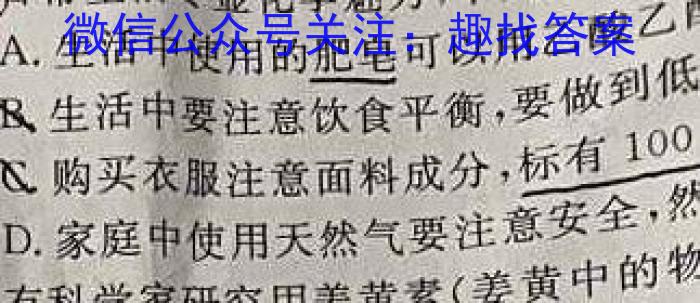 微信公众号关注：趣找答案
A. 生活中使用的肥皂可以用乙酸乙
B. 生活中要注意饮食平衡，要做到低
C. 购买衣服注意面料成分，标有 100
D. 家庭中使用天然气要注意安全，然
有科学家研究用姜黄素（姜黄中的物